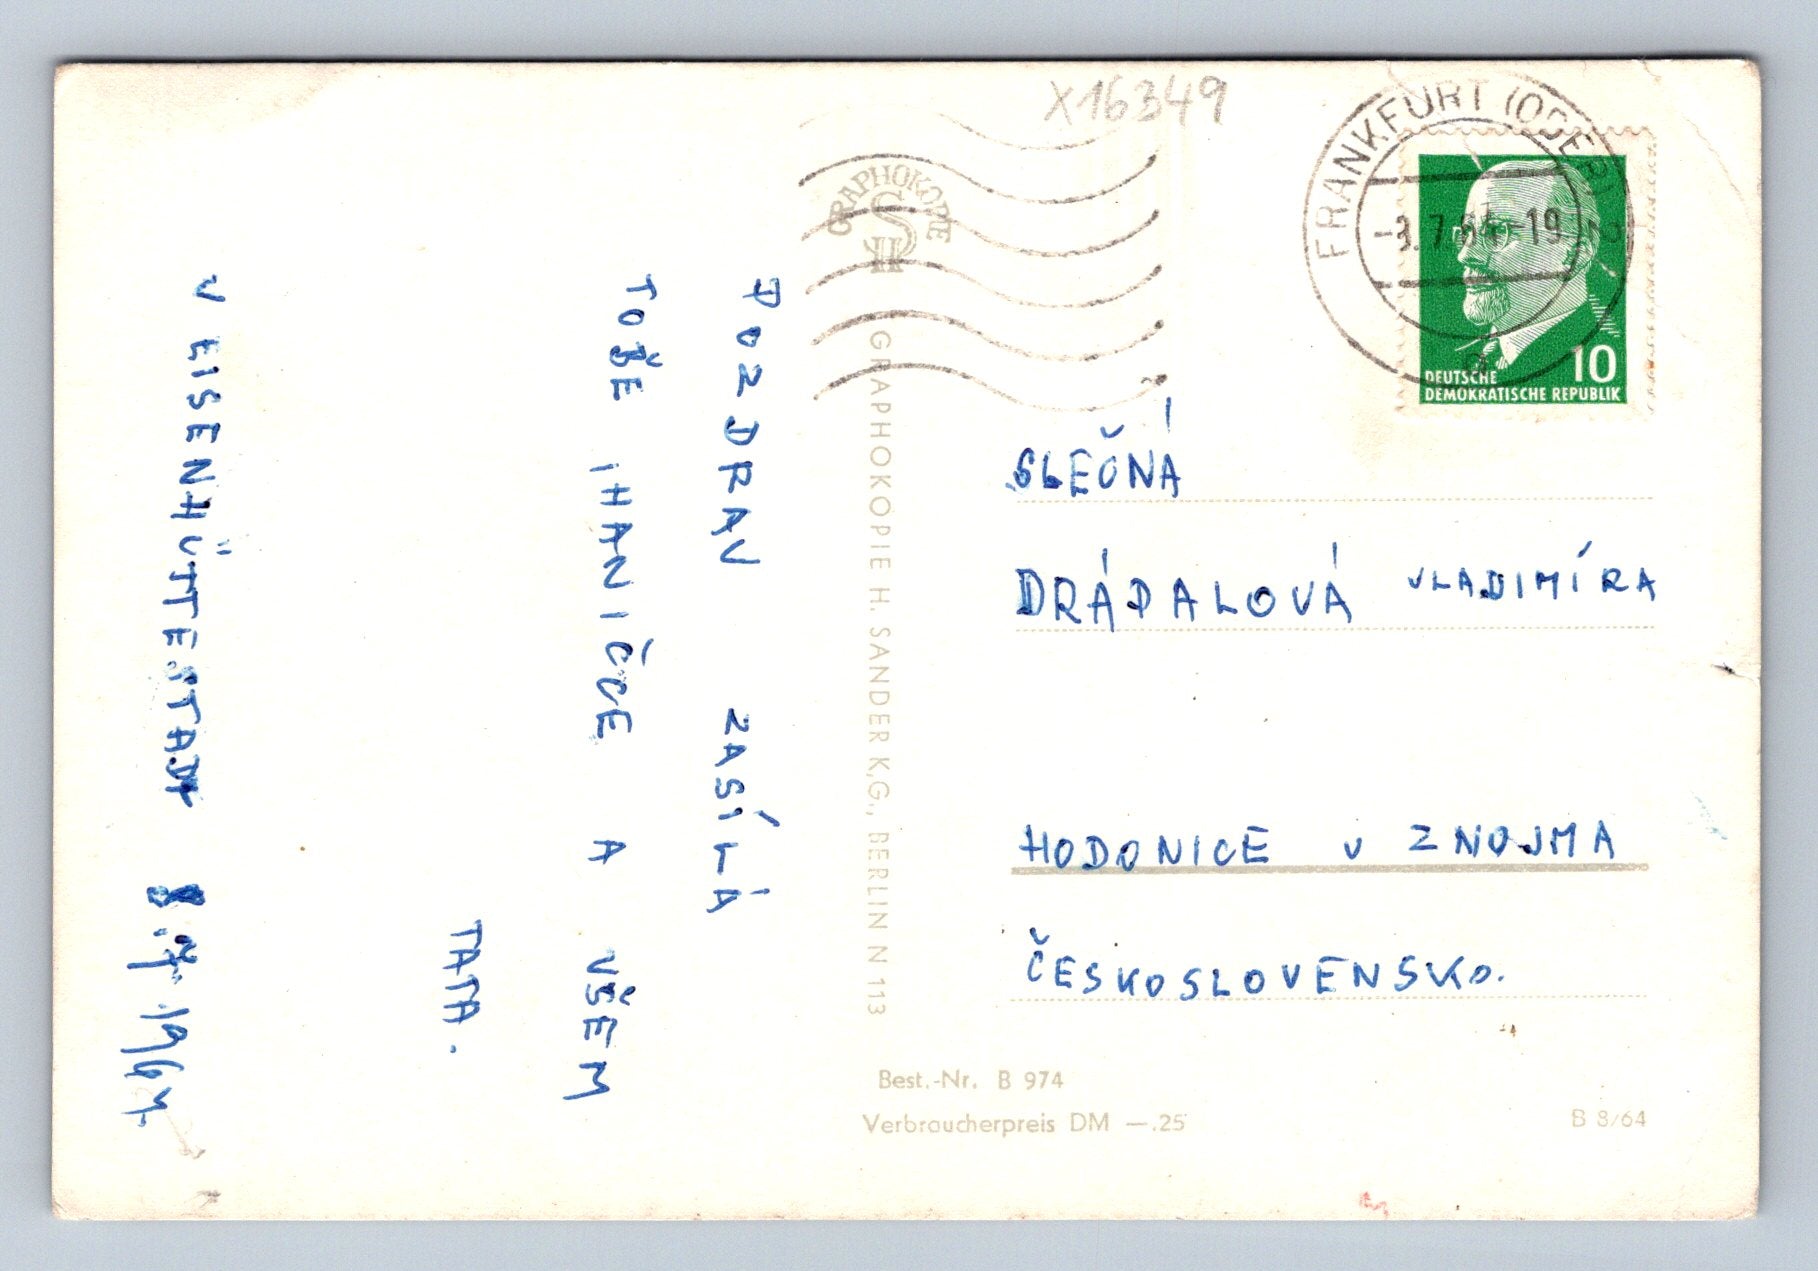 X16349
FRANKFURT (ODER) 2
-3.7.64-19
a
DEUTSCHE
DEMOKRATISCHE REPUBLIK
10
GRAPHOKOPIE
H S
GRAPHOKOPIE H. SANDER K.G., BERLIN N 113
POZDRAV ZASÍLÁ
TOŠE IHANIČCE A VŠEM
TATA.
V EISENHÜTTESTADT 8.7. 1964.
SLEČNÁ
DRÁPALOVÁ VLADIMÍRA
HODONICE U ZNOJMA
ČESKOSLOVENSKO.
Best.-Nr. B 974
Verbraucherpreis DM —.25
B 8/64